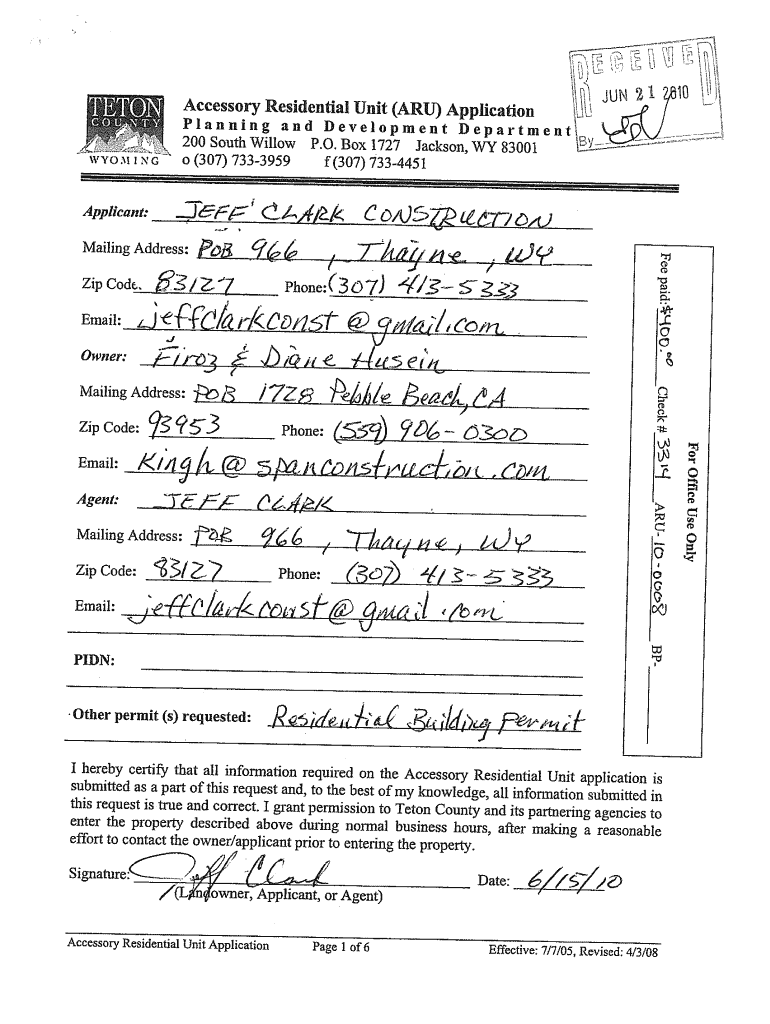 RECEIVED
JUN 21 2010
By
TETON
COUNTY
WYOMING
Accessory Residential Unit (ARU) Application
Planning and Development Department
200 South Willow P.O. Box 1727 Jackson, WY 83001
o (307) 733-3959 f (307) 733-4451
Applicant: JEFF CLARK CONSTRUCTION
Mailing Address: POB 966, Thayne, WY
Zip Code. 83127 Phone: (307) 413-5333
Email: jeffclarkconst@gmail.com
Owner: Firoz & Diane Husein
Mailing Address: POB 1728 Pebble Beach, CA
Zip Code: 93953 Phone: (559) 906-0300
Email: Kingh@spanconstruction.com
Agent: JEFF CLARK
Mailing Address: POB 966, Thayne, WY
Zip Code: 83127 Phone: (307) 413-5333
Email: jeffclarkconst@gmail.com
PIDN:
Other permit (s) requested: Residential Building Permit
For Office Use Only
Fee paid: $400.00 Check # 3314 ARU-10-0008 BP-
I hereby certify that all information required on the Accessory Residential Unit application is
submitted as a part of this request and, to the best of my knowledge, all information submitted in
this request is true and correct. I grant permission to Teton County and its partnering agencies to
enter the property described above during normal business hours, after making a reasonable
effort to contact the owner/applicant prior to entering the property.
Signature: Jeff Clark Date: 6/15/10
(Landowner, Applicant, or Agent)
Accessory Residential Unit Application Page 1 of 6 Effective: 7/7/05, Revised: 4/3/08